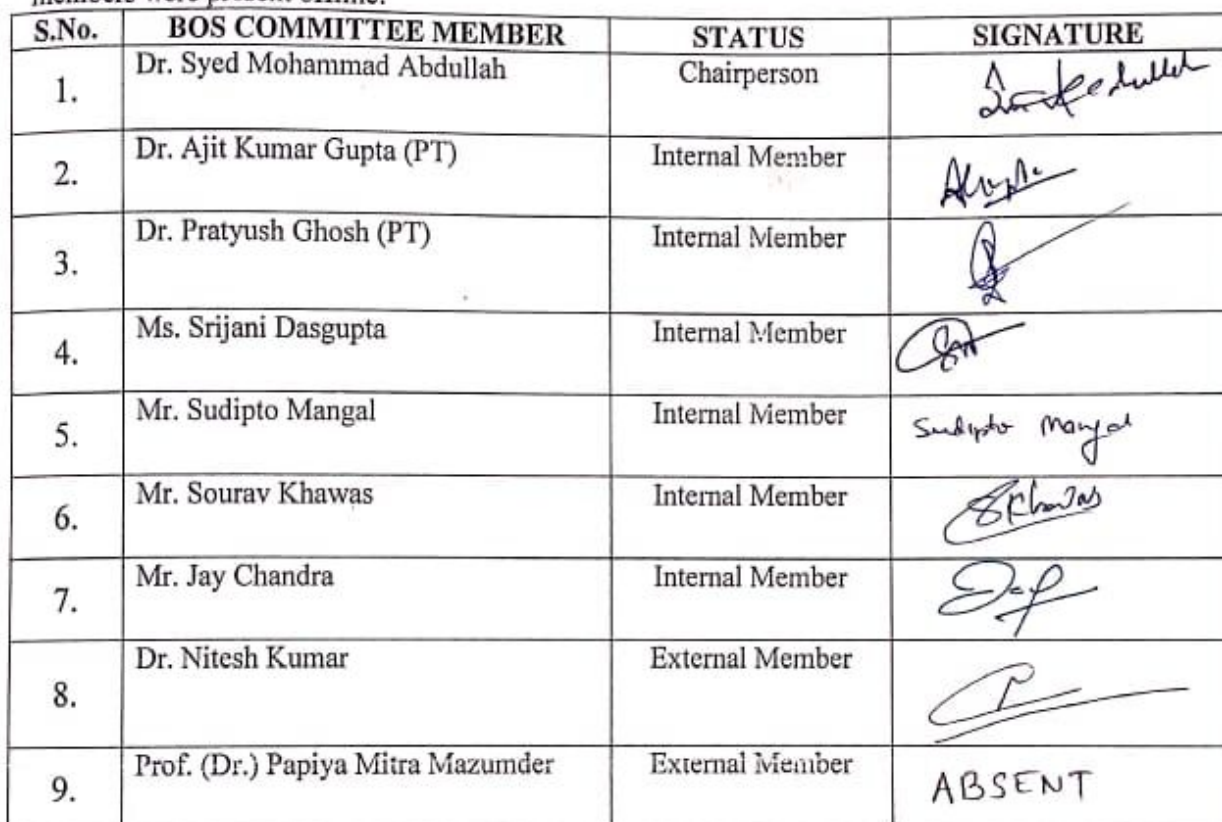 members were present offline.
S.No. BOS COMMITTEE MEMBER STATUS SIGNATURE
1. Dr. Syed Mohammad Abdullah Chairperson
2. Dr. Ajit Kumar Gupta (PT) Internal Member
3. Dr. Pratyush Ghosh (PT) Internal Member
4. Ms. Srijani Dasgupta Internal Member
5. Mr. Sudipto Mangal Internal Member Sudipto Mangal
6. Mr. Sourav Khawas Internal Member SKhawas
7. Mr. Jay Chandra Internal Member
8. Dr. Nitesh Kumar External Member
9. Prof. (Dr.) Papiya Mitra Mazumder External Member ABSENT